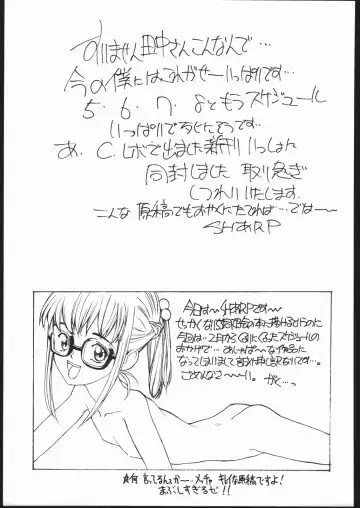 すいません田中さんこんなんで…
今の僕にはこれがせーいっぱいです…
5.6.7.8ともうスケジュール
いっぱいで死にそうです…
あ、C.レボで出ました新刊いっしょに
同封しました 取り急ぎ
しつれいいたします。
こんな原稿でもおやくにたてれば…では〜
SHaRP
今日は〜#あRPです〜
せっかく
今回は…2月からくるいにくるったスケジュールの
おかげで…
なってしまいまして申し訳ないです…。
ごめんなさ〜い。
がく…っ
★何言ってるんスか〜 メチャ キレイな原稿ですよ!
まぶしすぎるゼ!!